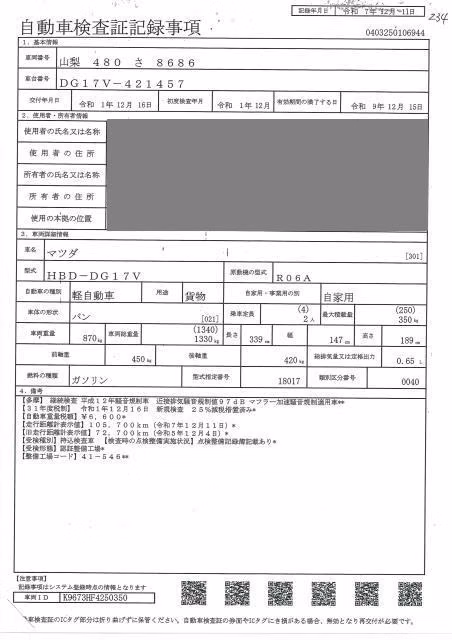 記録年月日 令和 7年12月11日
234
自動車検査証記録事項
0403250106944
1. 基本情報
車両番号 山梨 480 さ 8686
車台番号 DG17V-421457
交付年月日 令和 1年12月 16日 初度検査年月 令和 1年12月 有効期間の満了する日 令和 9年12月 15日
2. 使用者・所有者情報
使用者の氏名又は名称
使用者の住所
所有者の氏名又は名称
所有者の住所
使用の本拠の位置
3. 車両詳細情報
車名 マツダ [301]
型式 HBD-DG17V 原動機の型式 R06A
自動車の種別 軽自動車 用途 貨物 自家用・事業用の別 自家用
車体の形状 バン [021] 乗車定員 (4) 2人 最大積載量 (250) 350kg
車両重量 870kg 車両総重量 (1340) 1330kg 長さ 339cm 幅 147cm 高さ 189cm
前軸重 450kg 後軸重 420kg 総排気量又は定格出力 0.65 L
燃料の種類 ガソリン 型式指定番号 18017 類別区分番号 0040
4. 備考
【多摩】 継続検査 平成12年騒音規制車 近接排気騒音規制値97dB マフラー加速騒音規制適用車**
【31年度税制】 令和1年12月16日 新規検査 25%減税措置済み*
【自動車重量税額】¥6,600*
【走行距離計表示値】105,700km(令和7年12月11日)*
【旧走行距離計表示値】72,700km(令和5年12月4日)*
【受検種別】持込検査車 【検査時の点検整備実施状況】点検整備記録簿記載あり*
【受検形態】認証整備工場*
【整備工場コード】41-546**
【注意事項】
記録事項はシステム登録時点の情報となります
車両ID K9673HF4250350
車検査証のICタグ部分は折り曲げずに保管ください。自動車検査証の券面やICタグにき損がある場合、無効となり再交付が必要です。